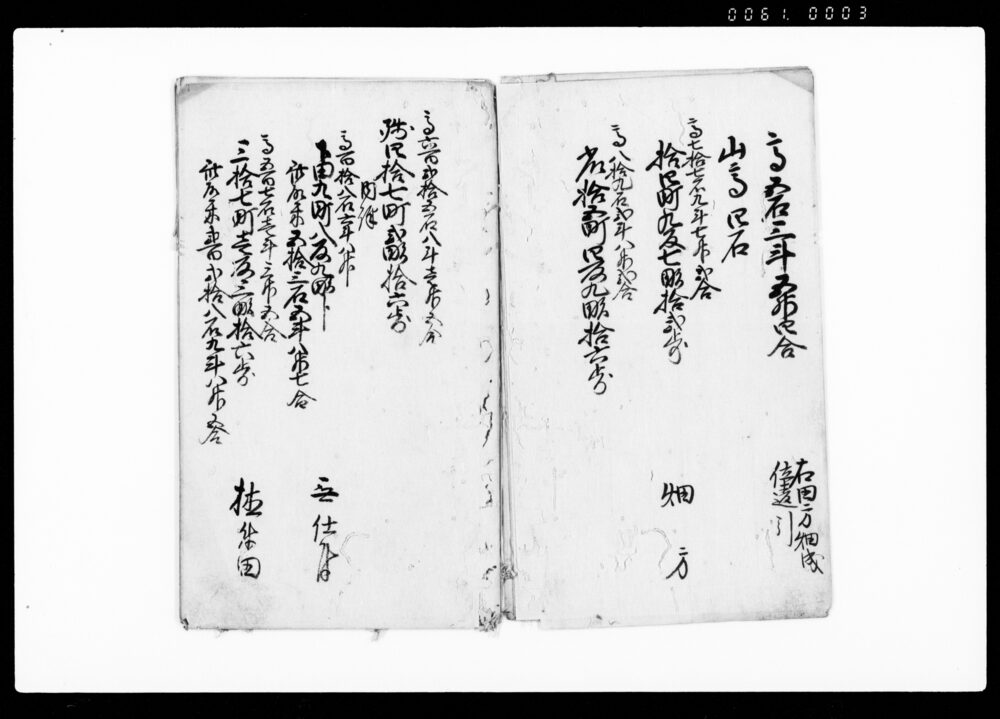 0061.0003
高五石三斗五升四合
右田方畑成
位違引
山高四石
高七拾七石九斗七升弐合
拾四町九反七畝拾弐歩
畑方
高八拾九石弐斗八升弐合
拾五町四反九畝拾六歩
高六百弐拾五石八斗壱升五合
残四拾七町弐畝拾六歩
内訳
高百拾八石六斗八升
下田九町八反九畝
此分米五拾三石五斗八升七合
無仕付
高五百七石壱斗三升五合
三拾七町壱反三畝拾六歩
此分米弐百弐拾八石九斗八升五合
植出田